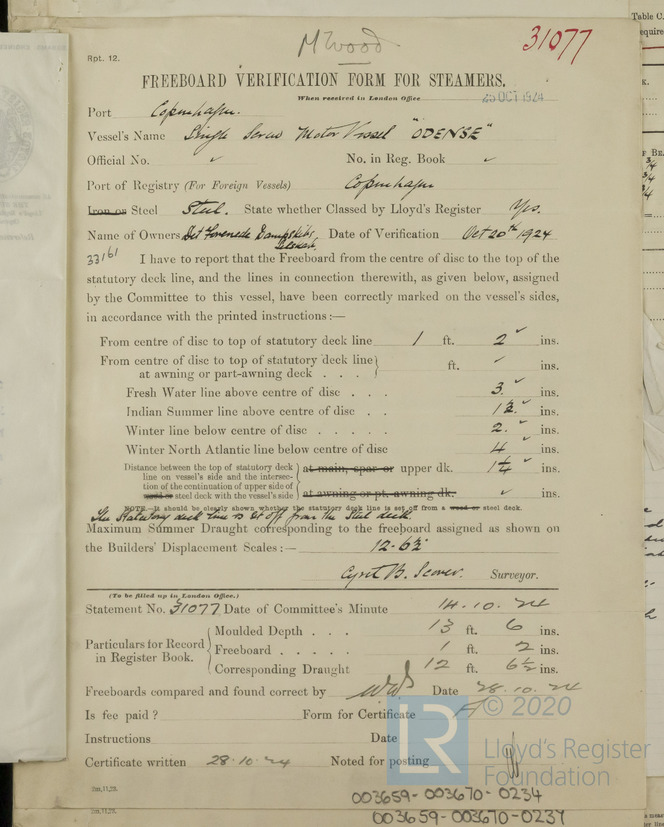 M Wood
31077
Rpt. 12.
FREEBOARD VERIFICATION FORM FOR STEAMERS.
When received in London Office 25 OCT 1924
Port Copenhagen.
Vessel's Name Single Screw Motor Vessel "ODENSE"
Official No. ✓ No. in Reg. Book ✓
Port of Registry (For Foreign Vessels) Copenhagen
Iron or Steel Steel. State whether Classed by Lloyd's Register Yes.
Name of Owners Det Forenede Dampskibs Selskab. Date of Verification Oct 20th 1924
33161 I have to report that the Freeboard from the centre of disc to the top of the
statutory deck line, and the lines in connection therewith, as given below, assigned
by the Committee to this vessel, have been correctly marked on the vessel's sides,
in accordance with the printed instructions:—
From centre of disc to top of statutory deck line 1 ft. 2 ✓ ins.
From centre of disc to top of statutory deck line
at awning or part-awning deck . . . ft. ✓ ins.
Fresh Water line above centre of disc . . . 3. ✓ ins.
Indian Summer line above centre of disc . . ✓ ins.
Winter line below centre of disc . . . . . 2. ✓ ins.
Winter North Atlantic line below centre of disc 4 ✓ ins.
Distance between the top of statutory deck
line on vessel's side and the intersec-
tion of the continuation of upper side of
wood or steel deck with the vessel's side
at main, spar or upper dk. 1¼ ✓ ins.
at awning or pt. awning dk. ✓ ins.
NOTE.—It should be clearly shown whether the statutory deck line is set off from a wood or steel deck.
The Statutory deck line is set off from the Steel deck
Maximum Summer Draught corresponding to the freeboard assigned as shown on
the Builders' Displacement Scales:— 12-6½
Cyril B. Surveyor.
(To be filled up in London Office.)
Statement No. 31077 Date of Committee's Minute 14.10.24
Particulars for Record
in Register Book.
Moulded Depth . . . 13 ft. 6 ins.
Freeboard . . . . . 1 ft. 2 ins.
Corresponding Draught 12 ft. 6½ ins.
Freeboards compared and found correct by Date 28.10.24
Is fee paid? Form for Certificate
Instructions Date
Certificate written 28.10.24 Noted for posting
LR © 2020
Lloyd's Register
Foundation
003659-003670-0234
003659-003670-0234
Table C.